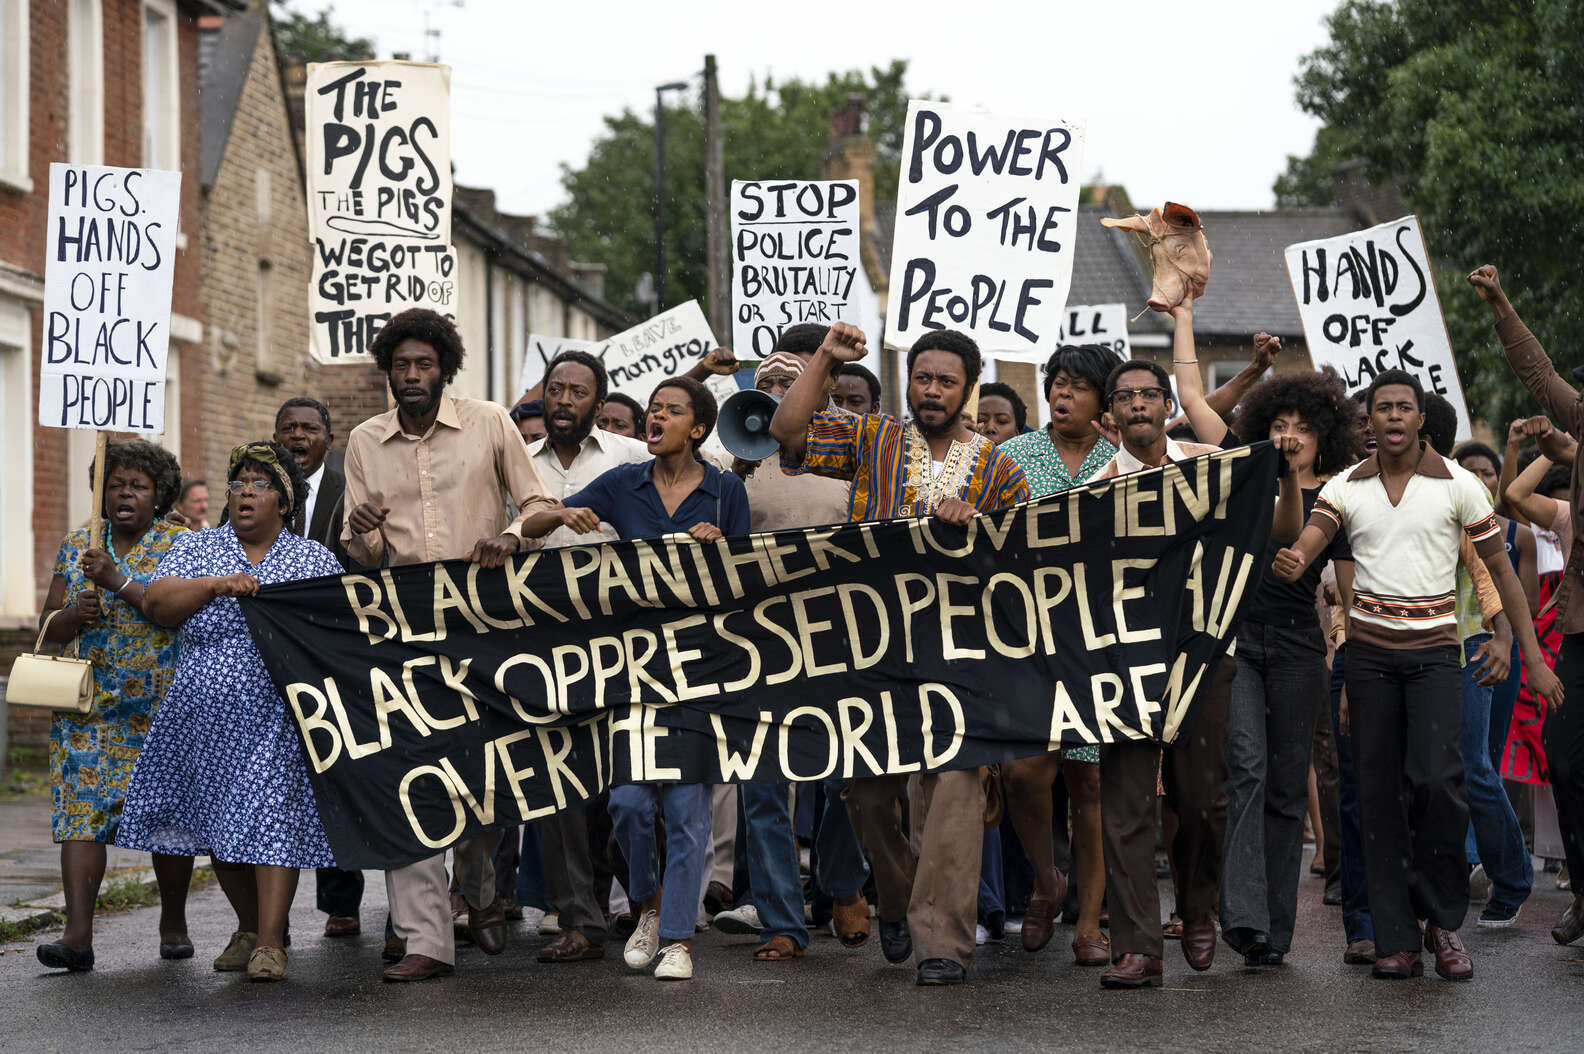 PIGS.
HANDS
OFF
BLACK
PEOPLE
THE
PIGS
THE PIGS
WE GOT TO
GET RID OF
THE
LEAVE
mangro
STOP
POLICE
BRUTALITY
OR START
POWER
TO THE
PEOPLE
ALL
HANDS
OFF
BLACK PANTHER MOVEMENT
BLACK OPPRESSED PEOPLE ALL
OVER THE WORLD ARE